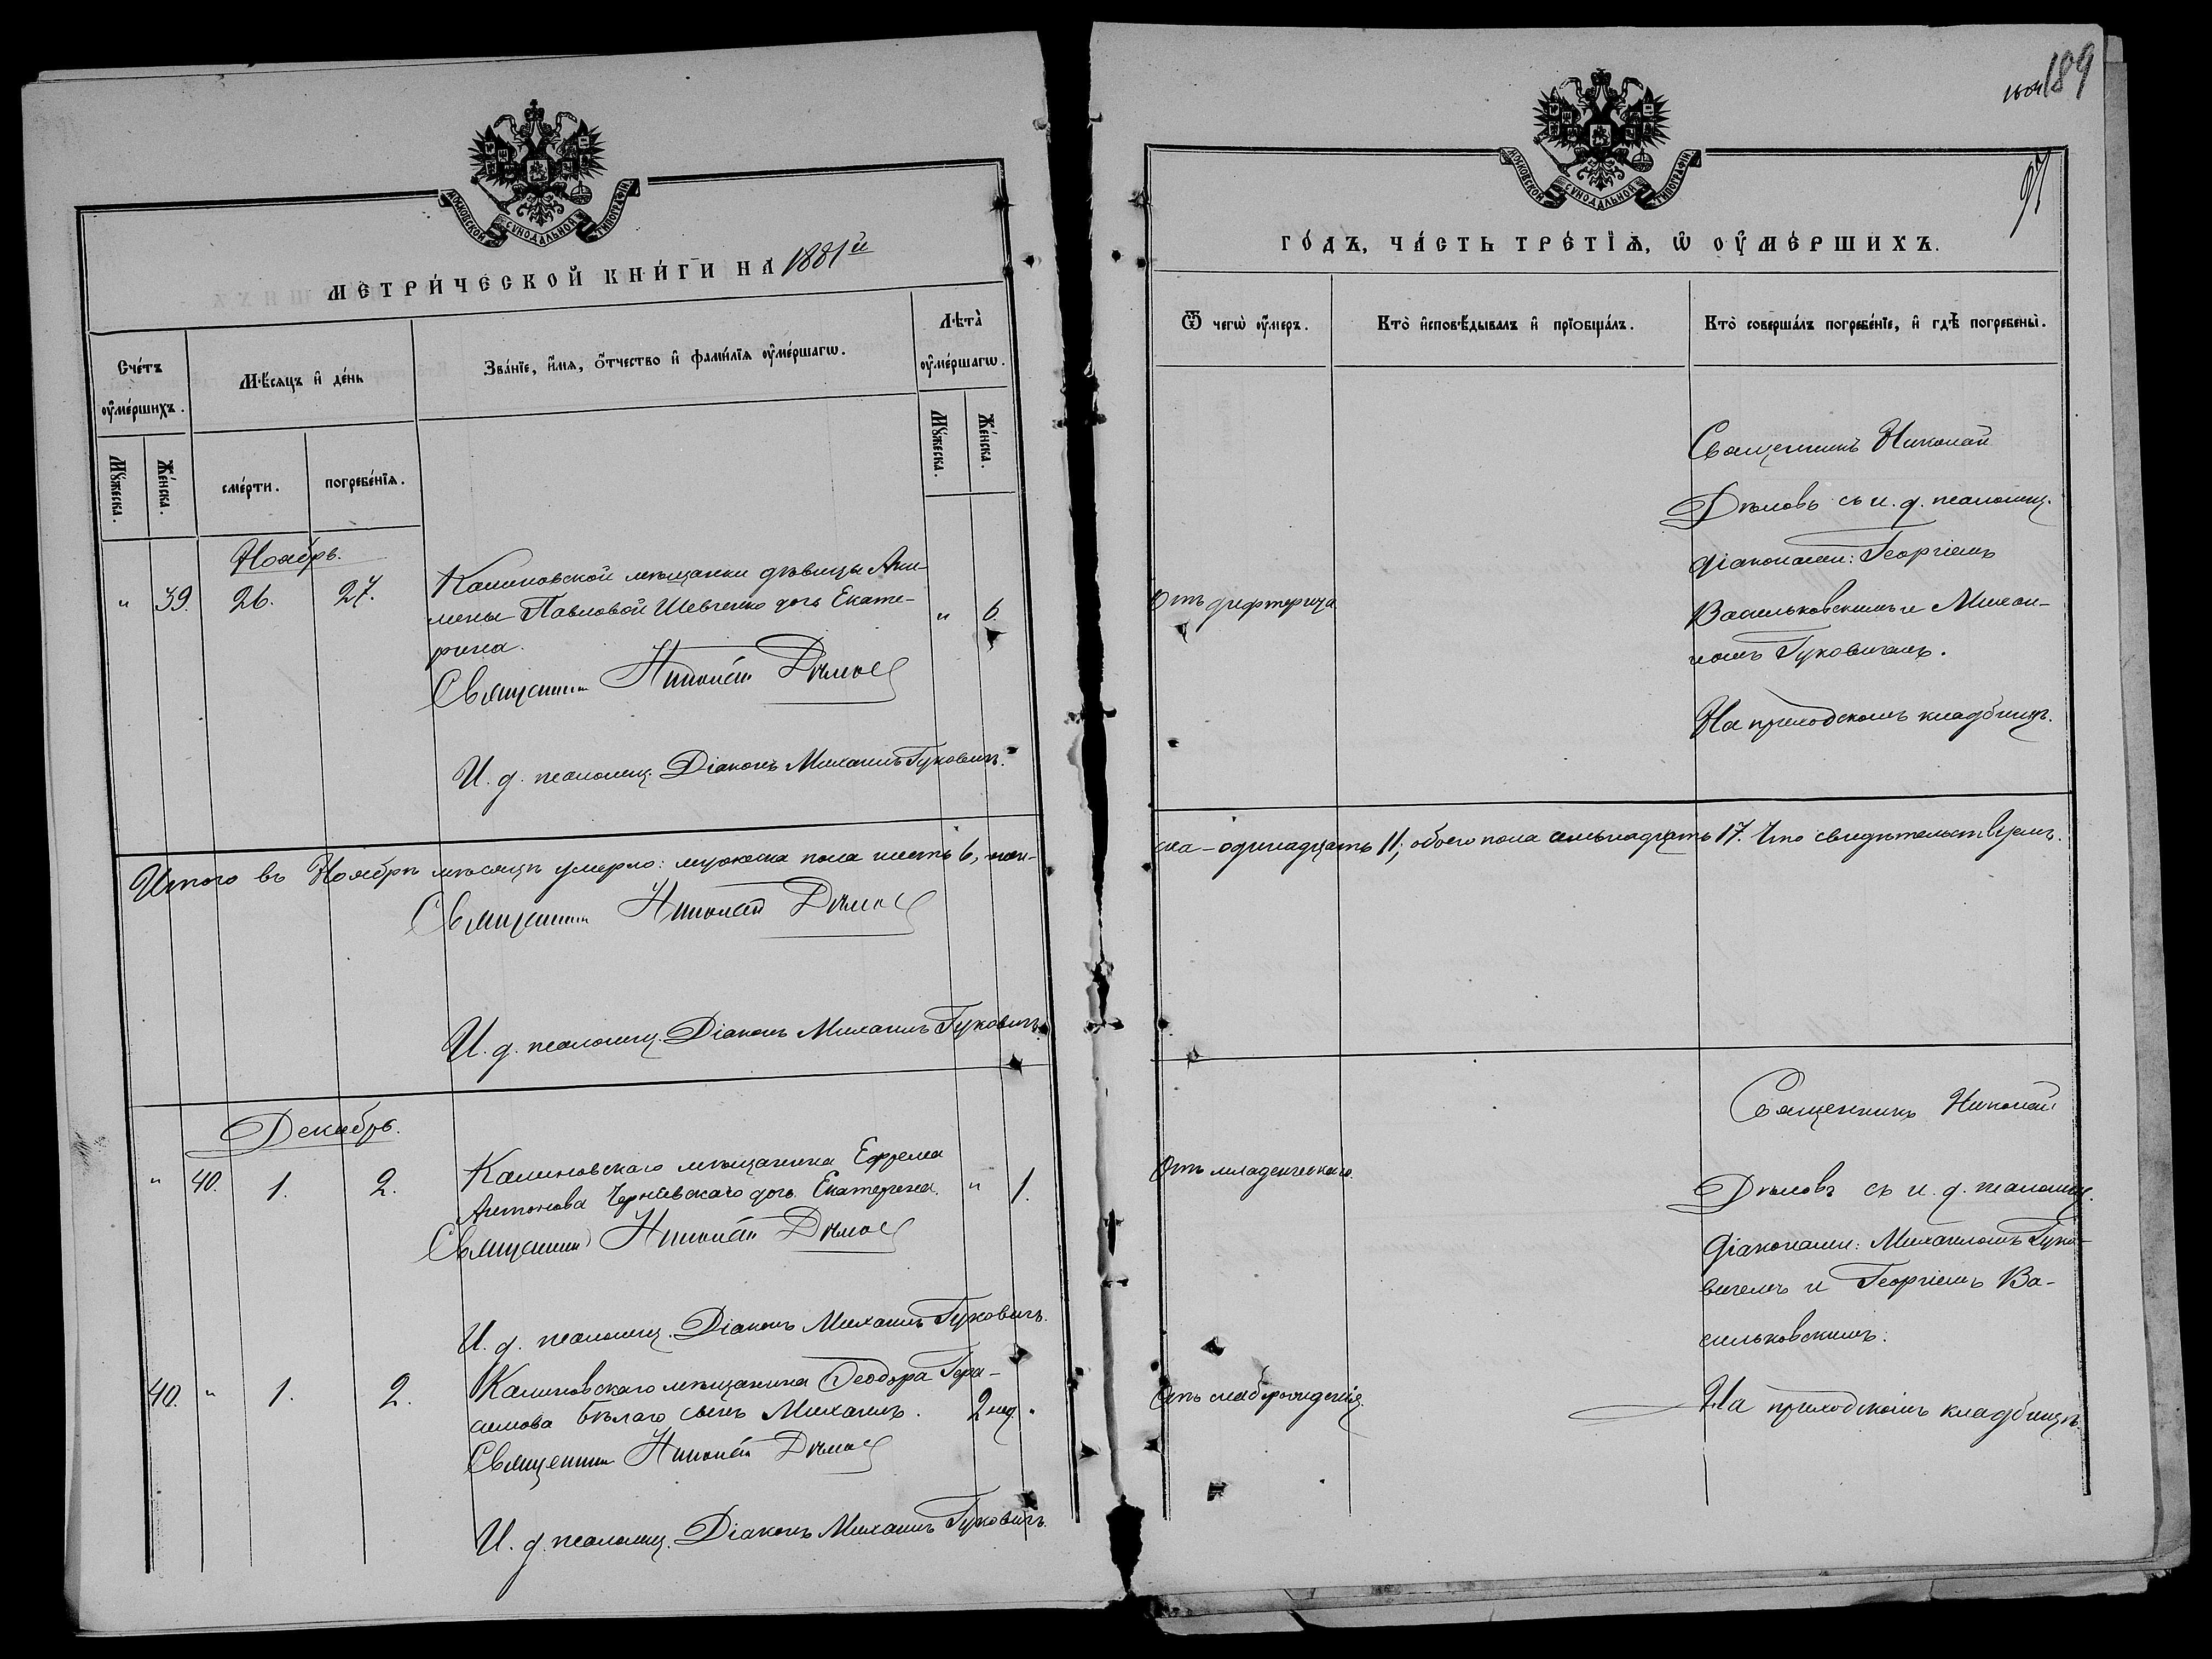 МОСКОВСКОЙ СѴНОДАЛЬНОЙ ТИПОГРАФІИ
МЕТРИ́ЧЕСКОЙ КНИ́ГИ НА 1881й
Сче́тъ ᲂу҆ме́ршихъ.
Мѣ́сяцъ и҆ де́нь
Зва́нїе, и҆́мѧ, ѻ҆́тчество и҆ фами́лїѧ ᲂу҆ме́ршагѡ.
Лѣта̀ ᲂу҆ме́ршагѡ.
Мꙋ́жеска.
Же́нска.
сме́рти.
погребе́нїѧ.
Мꙋ́жеска.
Же́нска.
Ноябрь.
" 39. 26. 27.
Калиновской мѣщанки дѣвицы Аки-
лины Павловой Шевченко дочь Екате-
рина.
" 6.
Священник Николай Дѣлов
И. д. псаломщ. Діаконъ Михаилъ Гуковичъ.
Итого въ Ноябрѣ мѣсяцѣ умерло: мужеска пола шесть 6, жен-
Священник Николай Дѣлов
И. д. псаломщ. Діаконъ Михаилъ Гуковичъ.
Декабрь.
" 40. 1. 2.
Калиновскаго мѣщанина Ефрема
Антонова Чернѣвскаго дочь Екатерина.
" 1.
Священник Николай Дѣлов
И. д. псаломщ. Діаконъ Михаилъ Гуковичъ.
40. " 1. 2.
Калиновскаго мѣщанина Ѳеодора Гера-
симова Бѣлаго сынъ Михаилъ.
2 нед. "
Священник Николай Дѣлов
И. д. псаломщ. Діаконъ Михаилъ Гуковичъ.
189
97
МОСКОВСКОЙ СѴНОДАЛЬНОЙ ТИПОГРАФІИ
ГО́ДЪ, ЧА́СТЬ ТРЕ́ТЇѦ, Ѡ҆ ОУ҆МЕ́РШИХЪ.
Ѿ чегѡ̀ ᲂу҆́меръ.
Кто̀ и҆сповѣ́дывалъ и҆ прїобща́лъ.
Кто̀ соверша́лъ погребе́нїе, и҆ гдѣ̀ погребены̀.
Отъ дифтерита
Священникъ Николай
Дѣловъ съ и. д. псаломщ.
діаконами: Георгіемъ
Васильковскимъ и Михаи-
ломъ Гуковичемъ.
На приходскомъ кладбищѣ.
ска – одинадцать 11; обоего пола семьнадцать 17. Что свидѣтельствуемъ.
Отъ младенческаго.
Священникъ Николай
Дѣловъ съ и. д. псаломщ.
діаконами: Михаиломъ Гуко-
вичемъ и Георгіемъ Ва-
сильковскимъ.
Отъ слаб. рожденія.
На приходскомъ кладбищѣ.